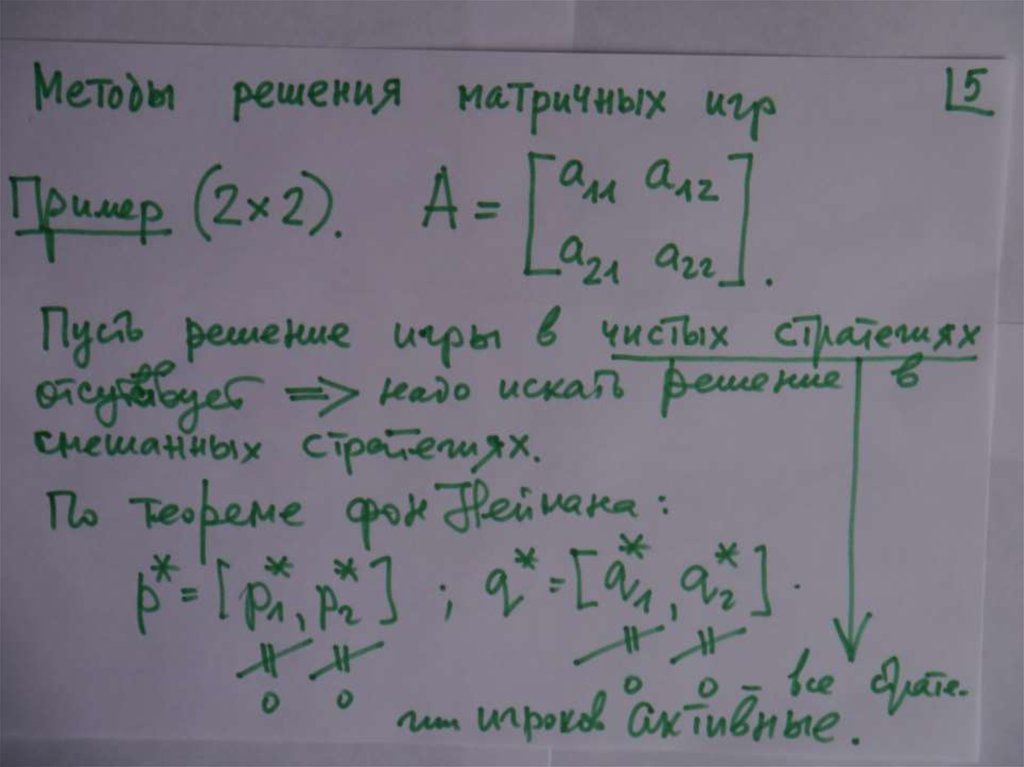 Методы решения матричных игр 5
Пример (2×2). A = [a₁₁ a₁₂
a₂₁ a₂₂].
Пусть решение игры в чистых стратегиях
отсутствует => надо искать решение в
смешанных стратегиях.
По теореме фон Неймана:
p* = [p₁*, p₂*] ; q* = [q₁*, q₂*].
≠ ≠ ≠ ≠
0 0 0 0 – все страте-
гии игроков активные.